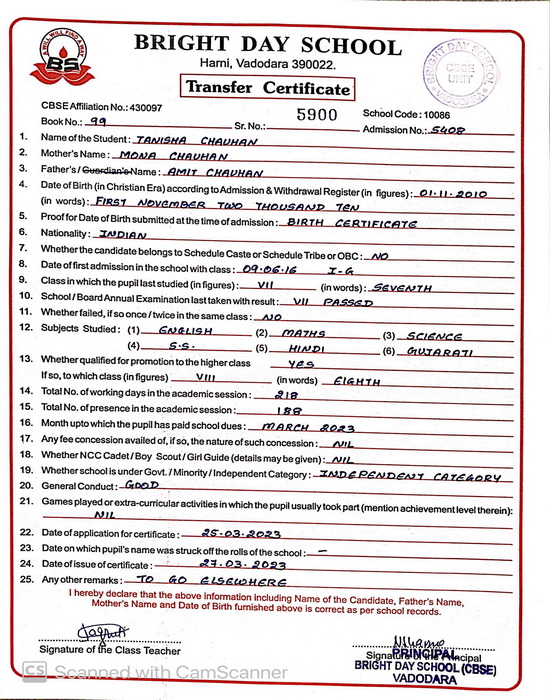 A WILL WILL FIND A WAY
BS
BRIGHT DAY SCHOOL
Harni, Vadodara 390022.
BRIGHT DAY SCHOOL
CBSE
UNIT
VADODARA
Transfer Certificate
CBSE Affiliation No.: 430097
5900
School Code : 10086
Book No.: 99 Sr. No.: Admission No.: 5408
1. Name of the Student : TANISHA CHAUHAN
2. Mother's Name : MONA CHAUHAN
3. Father's / Guardian's Name : AMIT CHAUHAN
4. Date of Birth (in Christian Era) according to Admission & Withdrawal Register (in figures) : 01.11.2010
(in words) : FIRST NOVEMBER TWO THOUSAND TEN
5. Proof for Date of Birth submitted at the time of admission : BIRTH CERTIFICATE
6. Nationality : INDIAN
7. Whether the candidate belongs to Schedule Caste or Schedule Tribe or OBC : NO
8. Date of first admission in the school with class : 09.06.16 I-G
9. Class in which the pupil last studied (in figures) : VII (in words) : SEVENTH
10. School / Board Annual Examination last taken with result : VII PASSED
11. Whether failed, if so once / twice in the same class : NO
12. Subjects Studied : (1) ENGLISH (2) MATHS (3) SCIENCE
(4) S.S. (5) HINDI (6) GUJARATI
13. Whether qualified for promotion to the higher class YES
If so, to which class (in figures) VIII (in words) EIGHTH
14. Total No. of working days in the academic session : 218
15. Total No. of presence in the academic session : 188
16. Month upto which the pupil has paid school dues : MARCH 2023
17. Any fee concession availed of, if so, the nature of such concession : NIL
18. Whether NCC Cadet / Boy Scout / Girl Guide (details may be given) : NIL
19. Whether school is under Govt. / Minority / Independent Category : INDEPENDENT CATEGORY
20. General Conduct : GOOD
21. Games played or extra-curricular activities in which the pupil usually took part (mention achievement level therein):
NIL
22. Date of application for certificate : 25.03.2023
23. Date on which pupil's name was struck off the rolls of the school : –
24. Date of issue of certificate : 27.03.2023
25. Any other remarks : TO GO ELSEWHERE
I hereby declare that the above information including Name of the Candidate, Father's Name,
Mother's Name and Date of Birth furnished above is correct as per school records.
Signature of the Class Teacher
Signature of the Principal
PRINCIPAL
BRIGHT DAY SCHOOL (CBSE)
VADODARA
CS Scanned with CamScanner